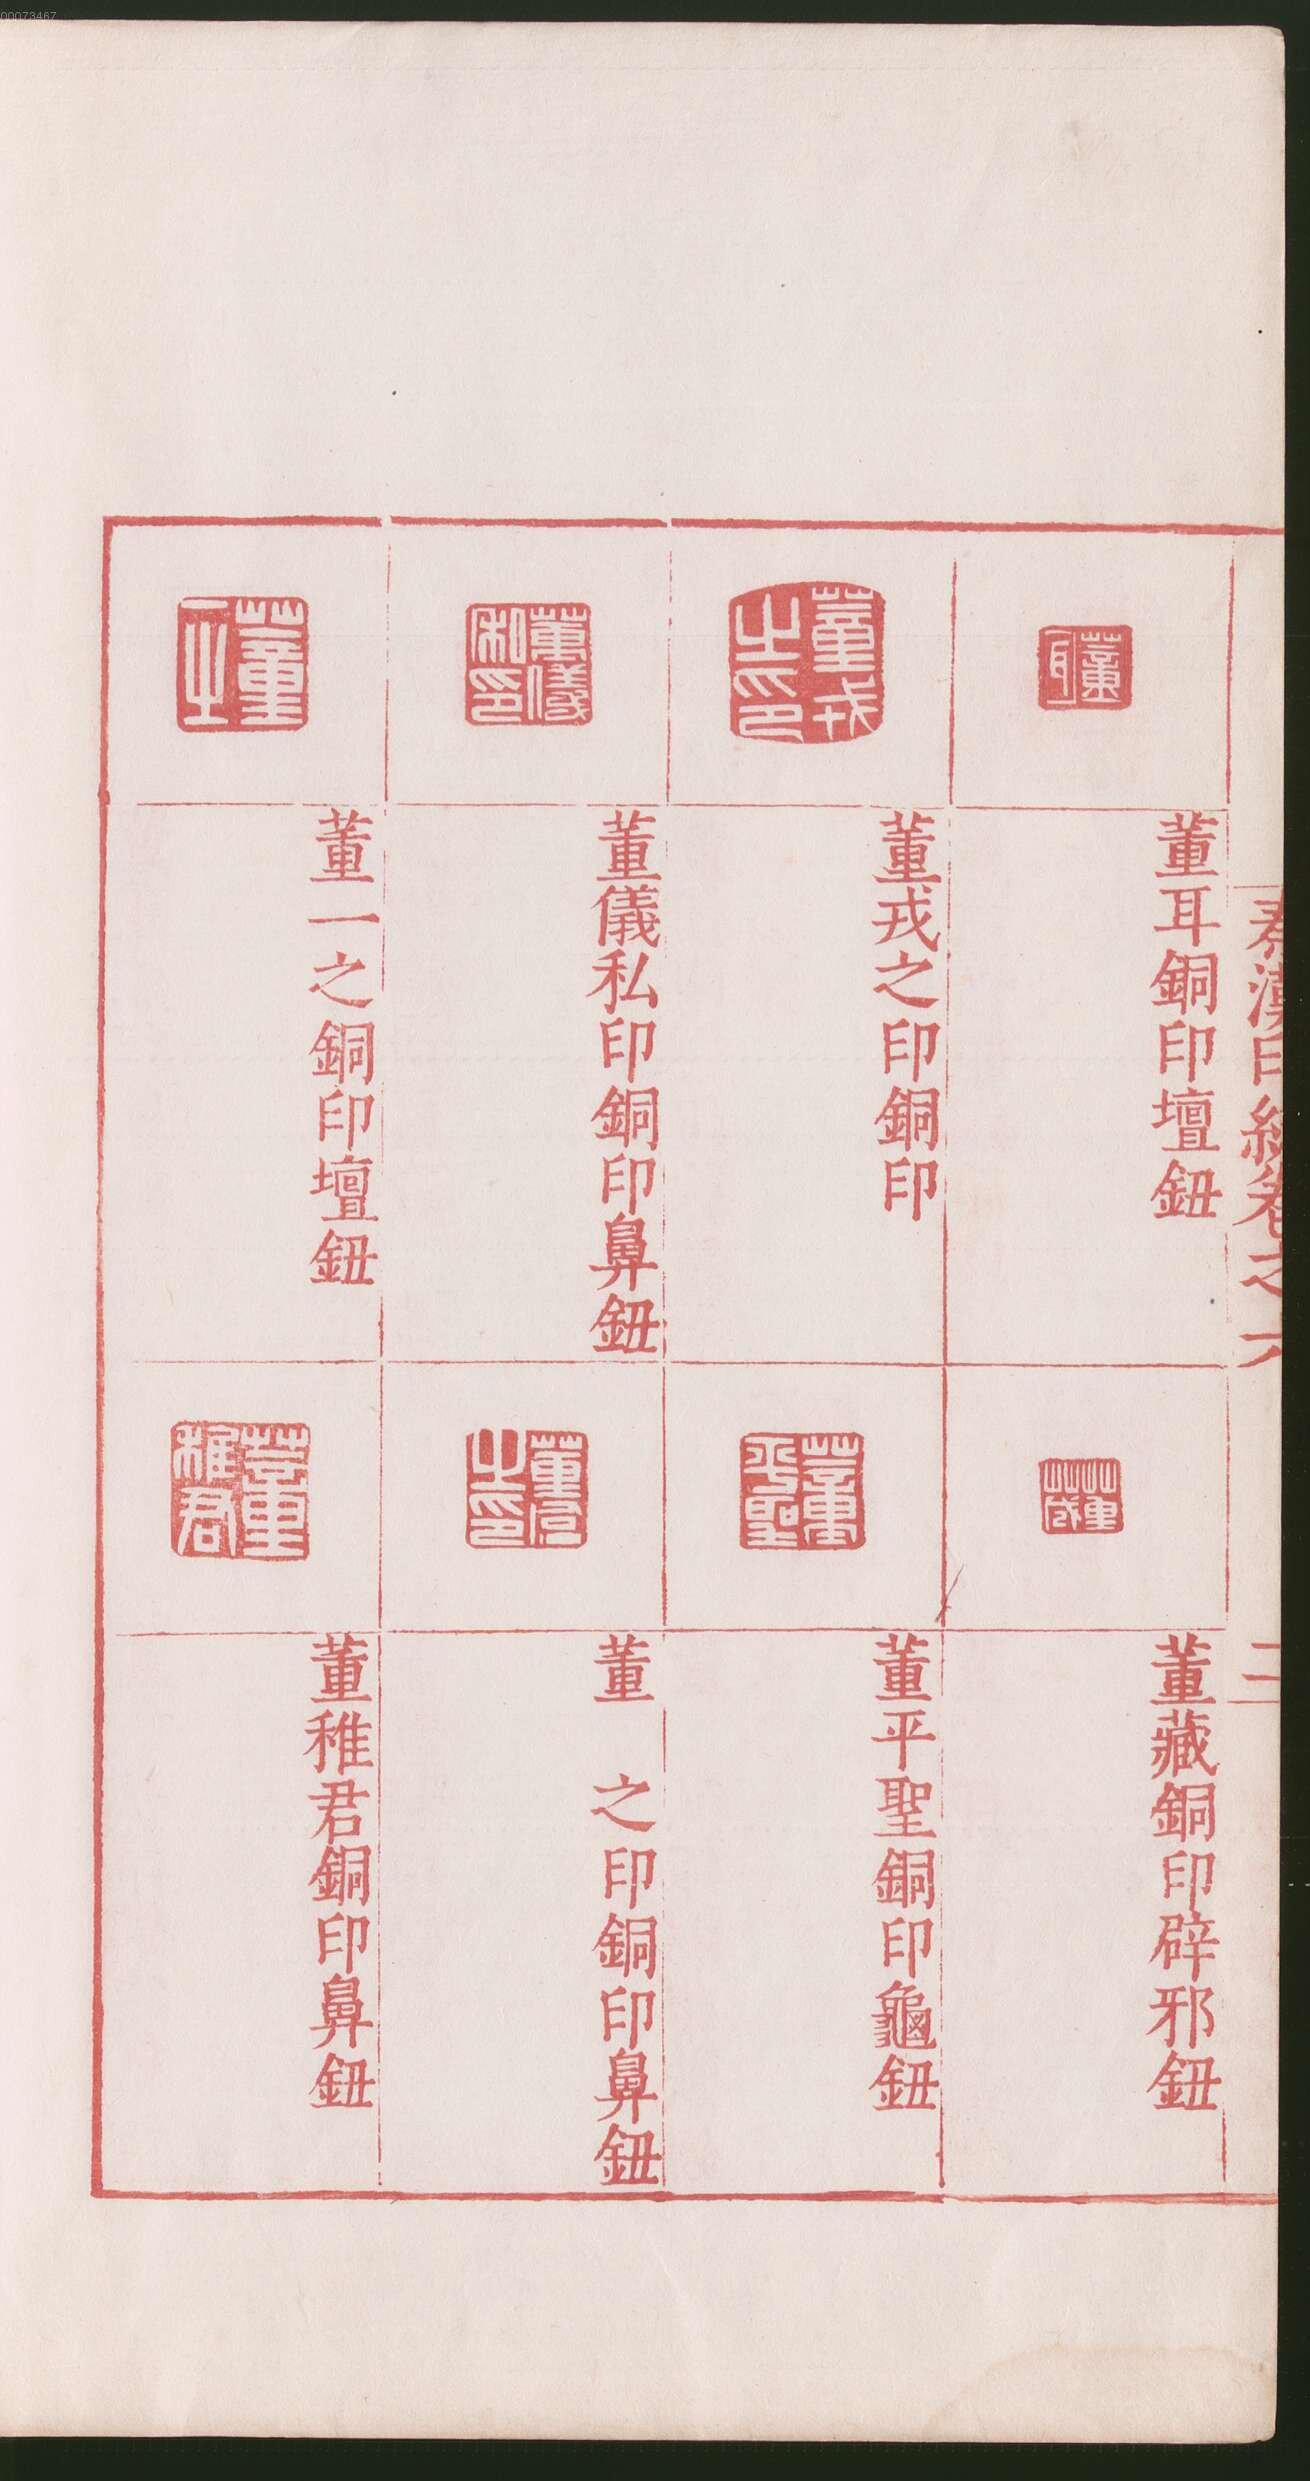 00073467
秦漢印統卷之六
二
董耳銅印壇鈕
董戎之印銅印
董儀私印銅印鼻鈕
董一之銅印壇鈕
董藏銅印辟邪鈕
董平聖銅印龜鈕
董　之印銅印鼻鈕
董稚君銅印鼻鈕
董耳
董戎之印
董儀私印
董一之
董藏
董平聖
之印
董稚君